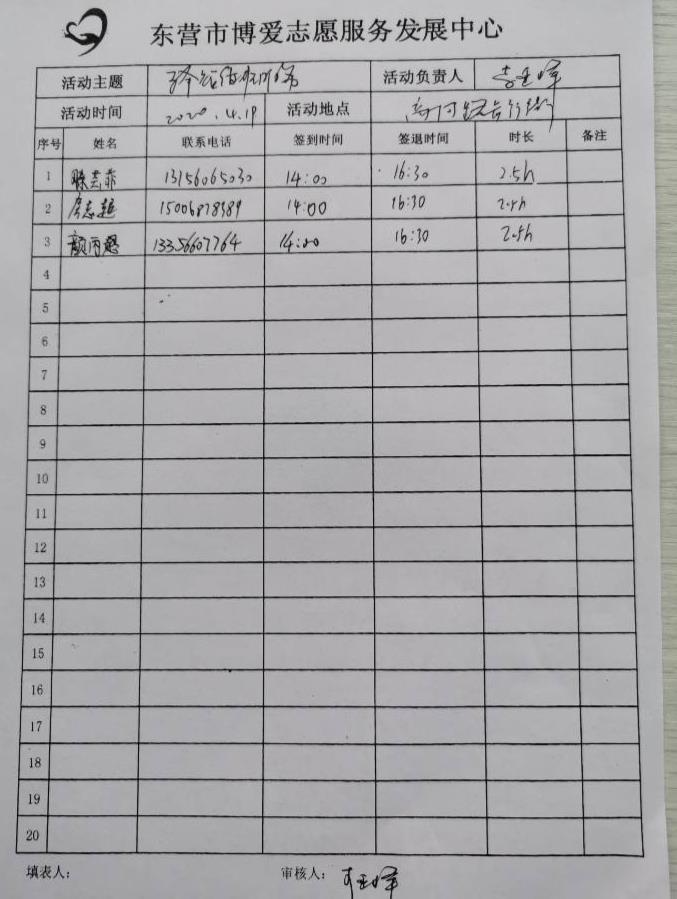 东营市博爱志愿服务发展中心
活动主题 活动负责人 李玉峰
活动时间 2020.4.19 活动地点
序号 姓名 联系电话 签到时间 签退时间 时长 备注
1 滕芸菲 13156065030 14:00 16:30 2.5h
2 志超 14:00 16:30 2.5h
3 颜丙慧 13356607764 14:00 16:30 2.5h
4
5
6
7
8
9
10
11
12
13
14
15
16
17
18
19
20
填表人: 审核人: 李玉峰